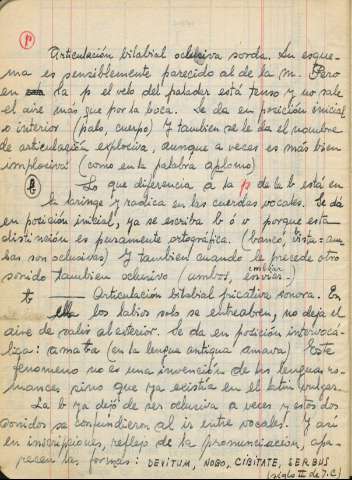 p
Articulación bilabial oclusiva sorda. Su esque-
ma es sensiblemente parecido al de la m. Pero
en la p el velo del paladar está tenso y no sale
el aire más que por la boca. Se da en posición inicial
o interior (palo, cuerpo) Y tambien se le da el nombre
de articulación explosiva, aunque a veces es más bien
implosiva (como en la palabra aplomo)
b Lo que diferencia a la p de la b está en
la laringe y radica en las cuerdas vocales. Se dá
en posición inicial, ya se escriba b ó v porque esta
distinción es puramente ortográfica. (banco, vista = am-
bas son oclusivas) Y tambien cuando le precede otro
sonido tambien oclusivo (ambos, enviar.)
ƀ Articulación bilabial fricativa sonora. En
los labios solo se entreabren, no deja el
aire de salir al exterior. Se da en posición intervocá-
lica: amaba (en la lengua antigua amava) Este
fenomeno no es una invención de las lenguas ro-
mances sino que ya existía en el latín vulgar.
La b ya dejó de ser oclusiva a veces y estos dos
sonidos se confundieron al ir entre vocales. Y así
en inscripciones, reflejo de la pronunciación, apa-
recen las formas: DEVITUM, NOBO, CIBITATE, SERBUS
(siglo II de J.C)